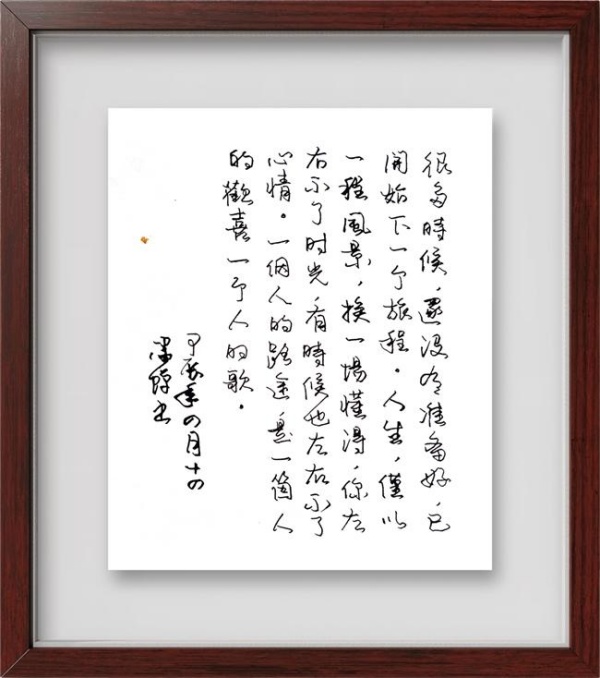 很多時候，還没有准备好，已
開始下一个旅程。人生，僅以
一程風景，換一場懂得，你左
右不了时光，有時候也左右不了
心情。一個人的路途，是一箇人
的歡喜一个人的歌。
甲辰年四月十四
书